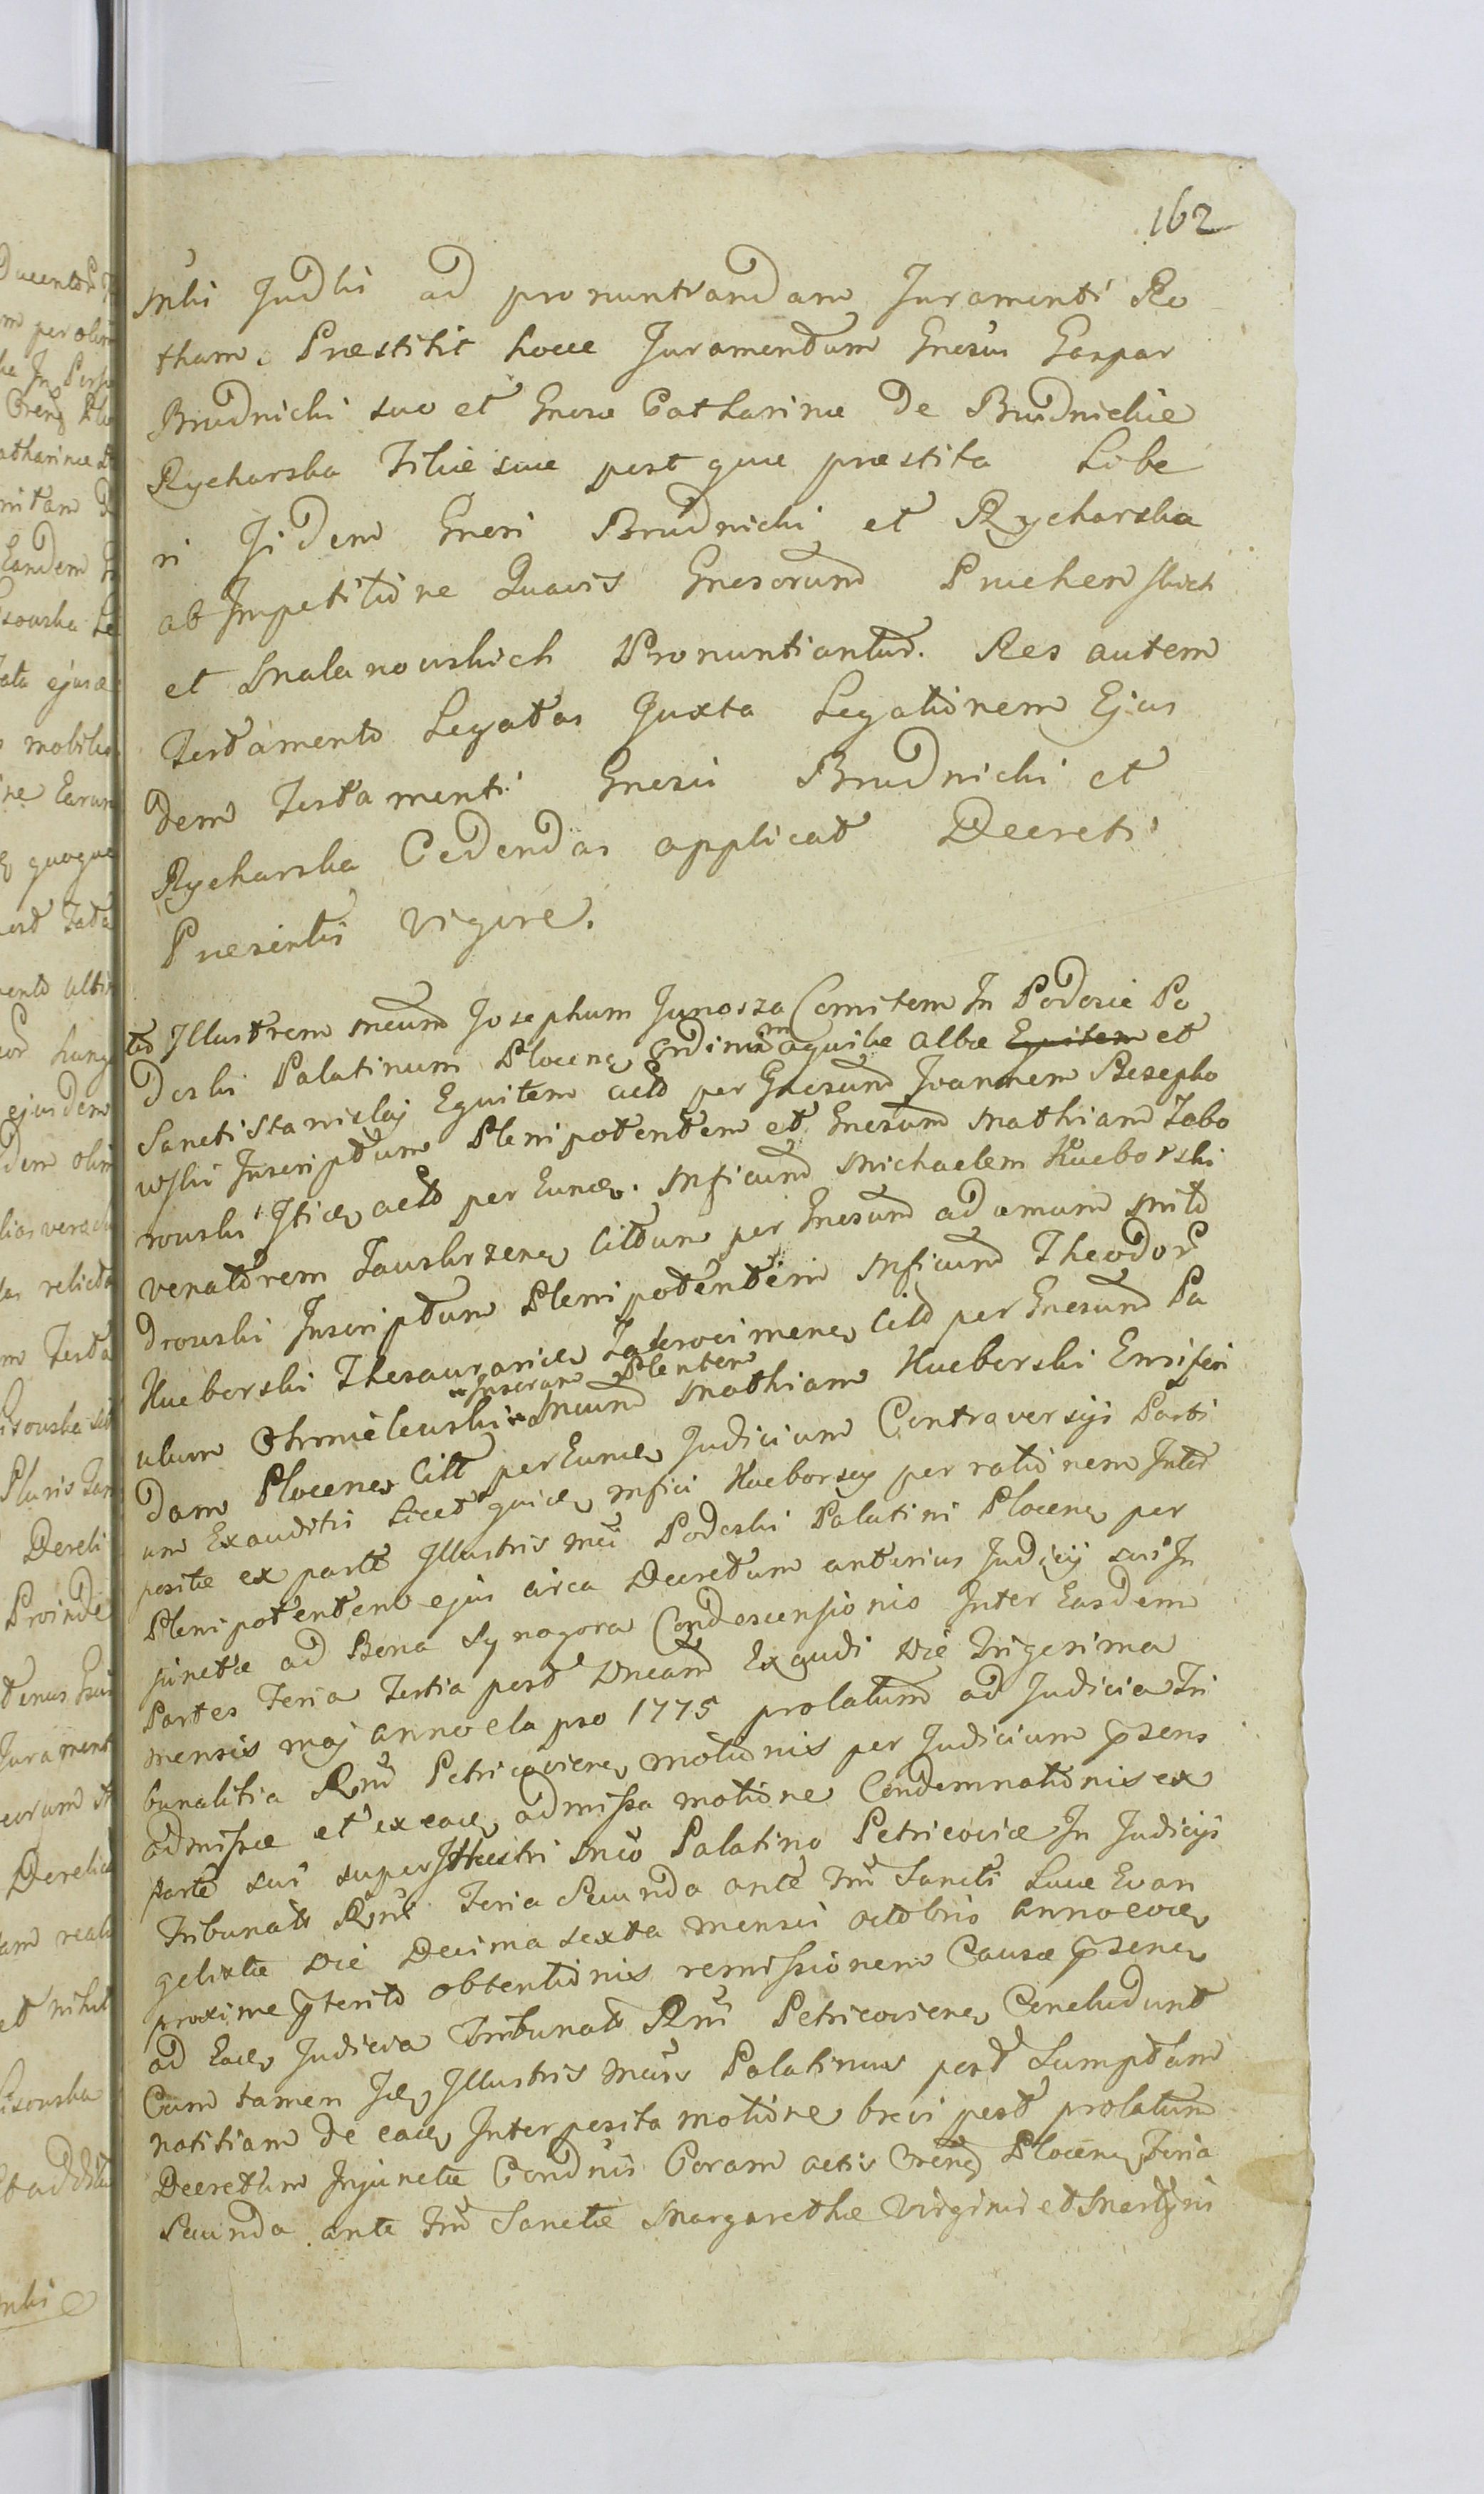 162
Mlis Judlis ad pronuntiandam Juramenti Ro
tham. Præstitit hocce Juramentum Gnesus Gaspar
Brudnicki suo et Gnosæ Catharinæ de Brudnickie
Rycharska Filiæ suæ post quæ præstita Libe
ri Jidem Gnesi Brudnicki et Rycharska
ab Impetitione Quavis Gnesorum Pruchenskich
et Malanowskich Pronuntiantur. Res autem
Testamento Legatas Juxta Legationem Ejus
dem Testamenti Gnesis Brudnicki et
Rycharska Cedendas applicat Decreti
Præsentis vigore.
Illustrem Mcum Josephum Junosza Comitem In Podosie Po
doski Palatinum Plocen Ordinum aquilæ albæ Equitem et
Sancti Stanislaj Equitem acto per Gnesum Joannem Rzeszpho
wski Inscriptum Plenipotentem et Gnesum Mathiam Zabo
rowski acto per Eund. Mficum Michaelem Kueborski
venatorem Zawskrzen Citatum per Gnesum adamum Mio
drowski Inscriptum Plenipotentem Mficum Theodor
Kueborski Thesaurarid Zakrocimen Citto per Gnesum Pa
ulum Chmielewski Inscram Plenten Mcum Mathiam Kueborski Ensiferi
dam Plocen Citt per Eund Judicium Controversijs Parti
um Exauditis Licet quid Mfici Kueborscy per rationem Inter
positæ ex parte Illustris Mci Podoski Palatini Plocen per
Plenipotentem ejus circa Decretum anterius Judicij sui In
junctæ ad Bona Synogora Condescensionis Inter Easdem
Partes Feria Tertia post Dncam Exaudi Die Trigesima
mensis maj anno elapso 1775 prolatum ad Judicia Tri
bunalitia Rni Petricovien motionis per Judicium pñsens
admissæ et ex ead admissa motione Condemnationis ex
parte sui super Illustri Mco Palatino Petricoviæ In Judicijs
Tribunalis Rni Feria Secunda ante Fm Sancti Lucæ Evan
gelistæ Die Decima sexta mensis octobris anno eod
proxime pterito obtentionis remissionem Causæ psens
ad Ead Judicia Tribunals Rni Petricovien Concludunt
Cum tamen Id Illustris Mcus Palatinus post Sumptam
notitiam de ead Interposita motione brevi post prolatum
Decretum Injunctæ Condnis Coram actis Cren Plocen Feria
Secunda ante Fm Sanctæ Margarethæ Virginis et Martyris